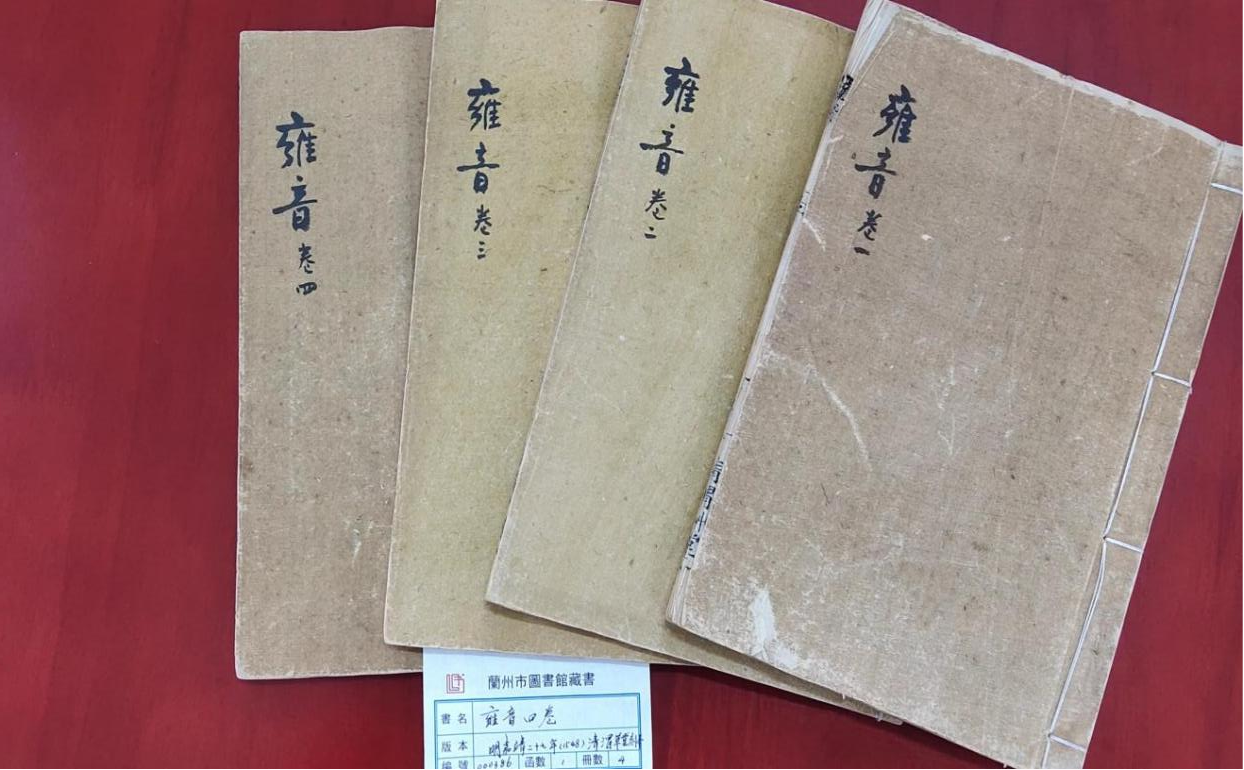 雍音卷一
雍音卷二
雍音卷三
雍音卷四
蘭州市圖書館藏書
書名 雍音四卷
版本 明嘉靖二十七年(1548)清渭草堂刻本
編號 000386 函數 1 冊數 4